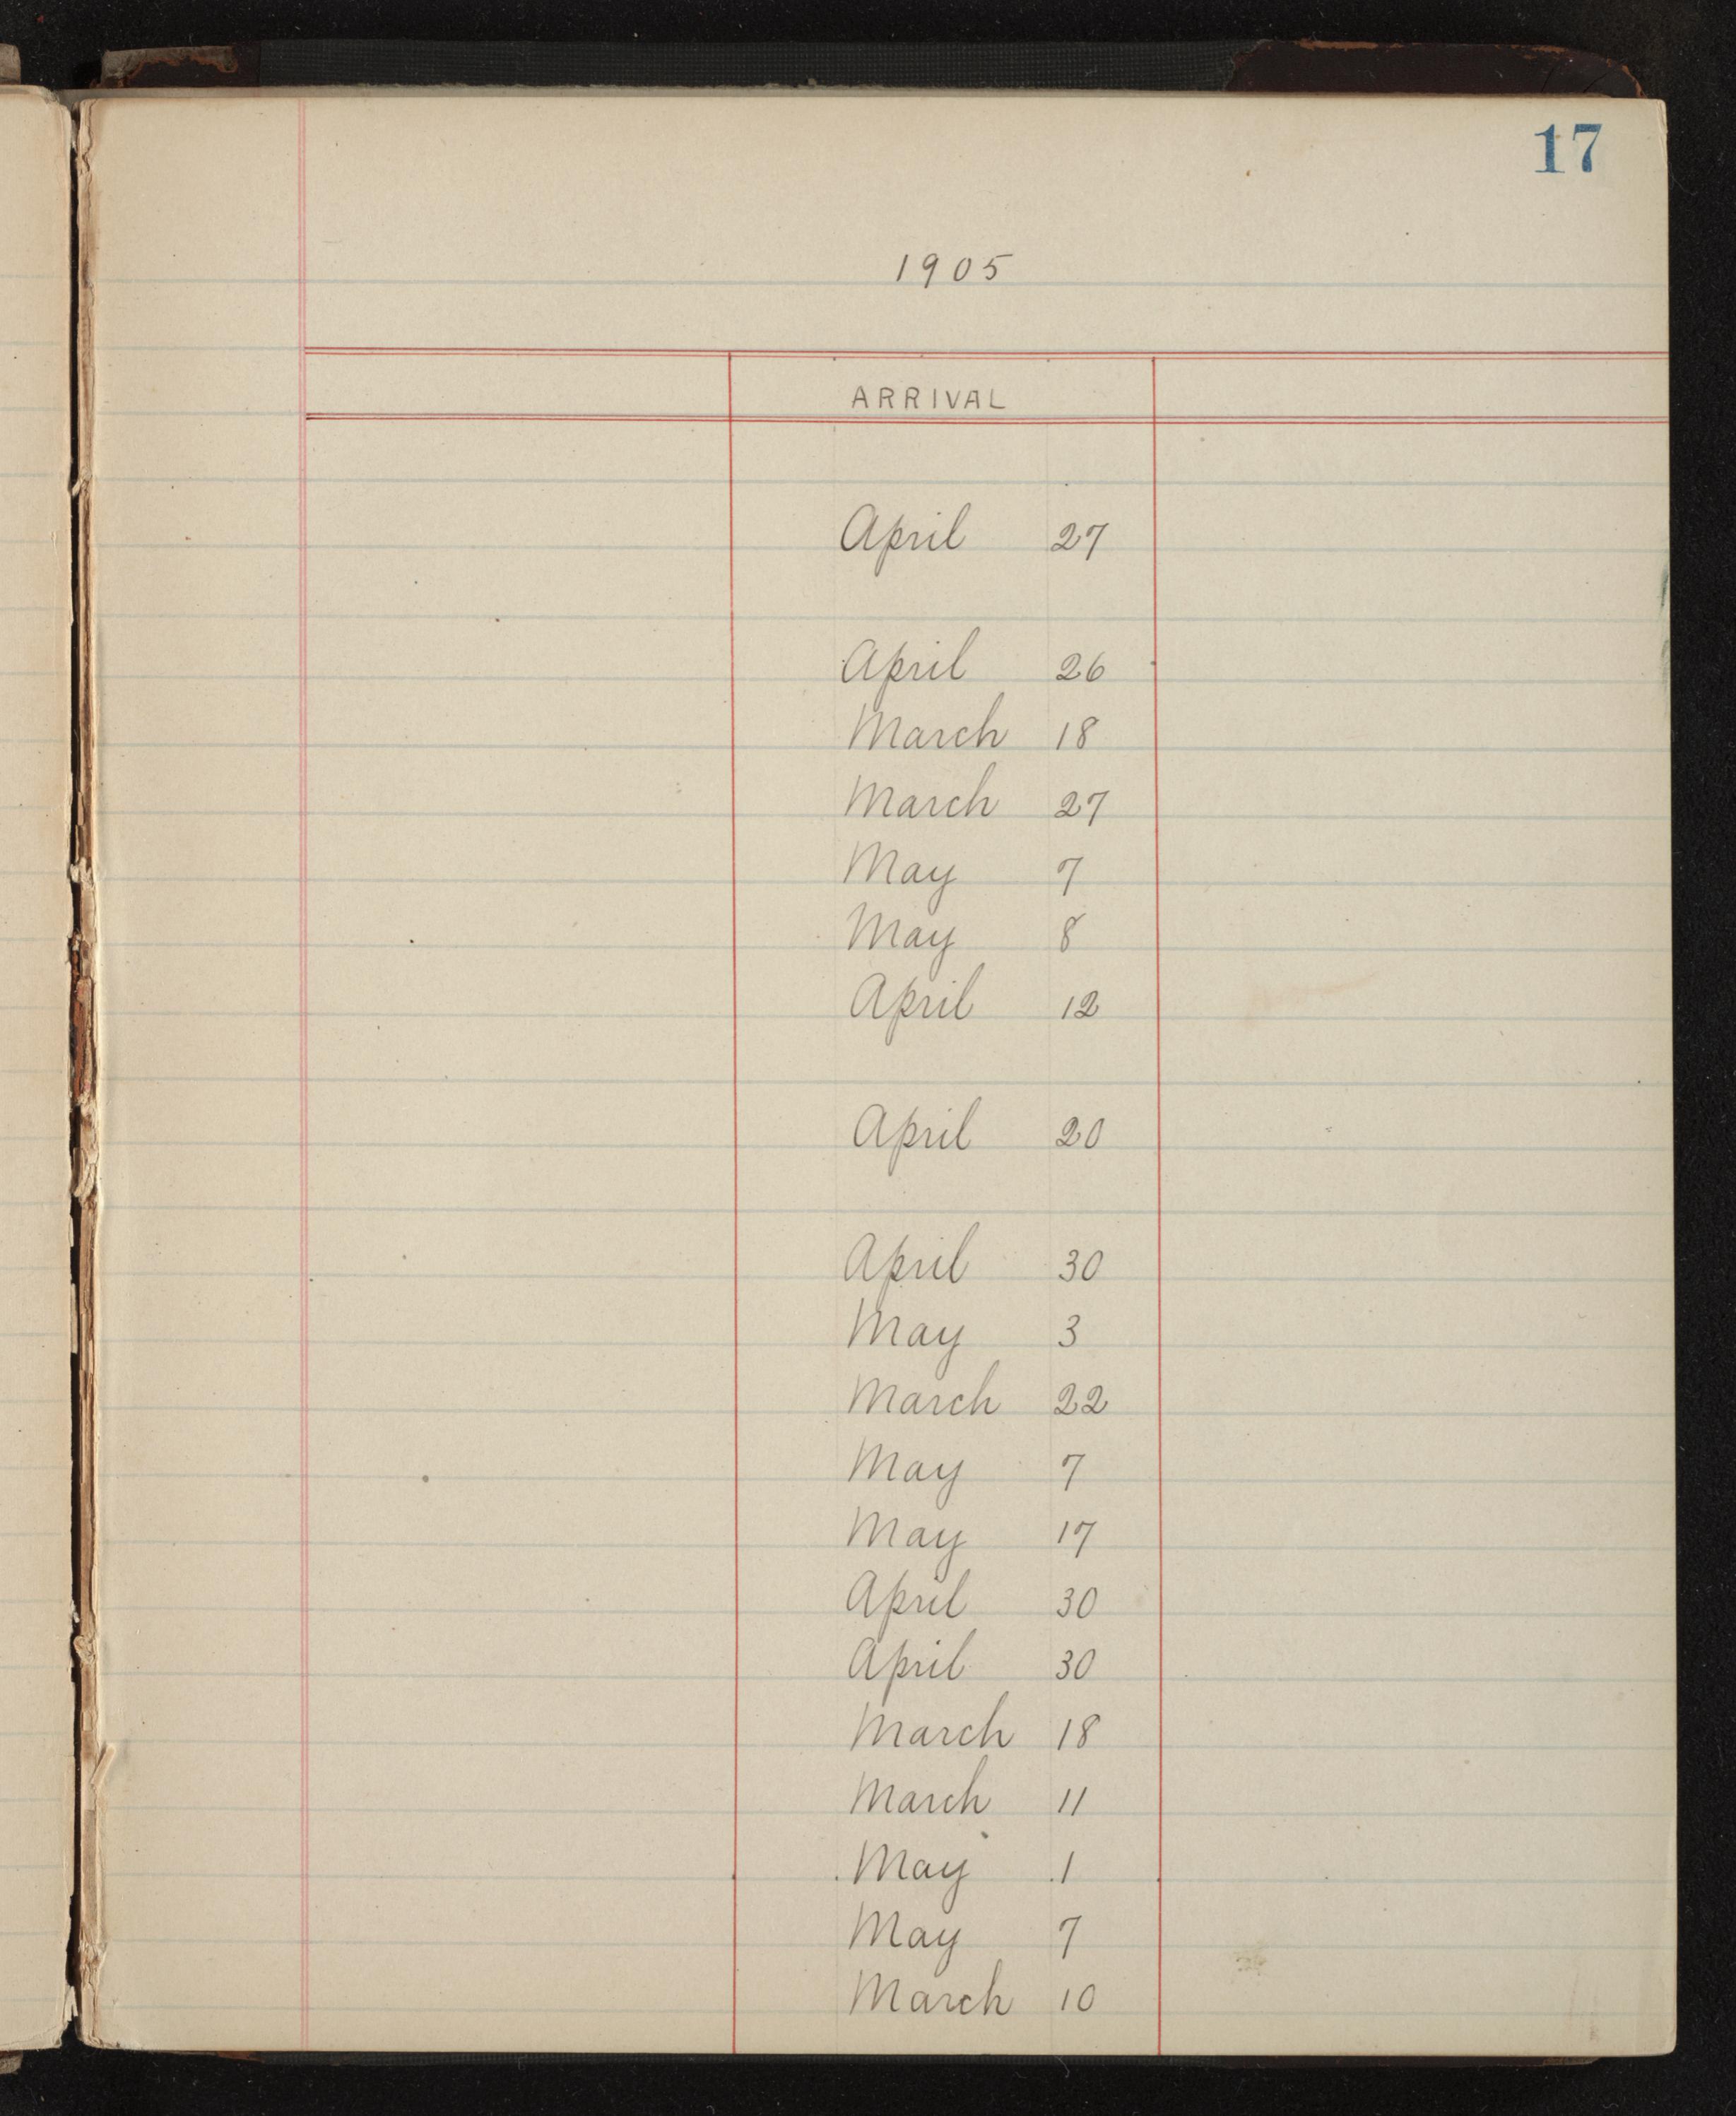 17
1905
ARRIVAL
April 27
April 26
March 18
March 27
May 7
May 8
April 12
April 20
April 30
May 3
March 22
May 7
May 17
April 30
April 30
March 18
March 11
May 1
May 7
March 10